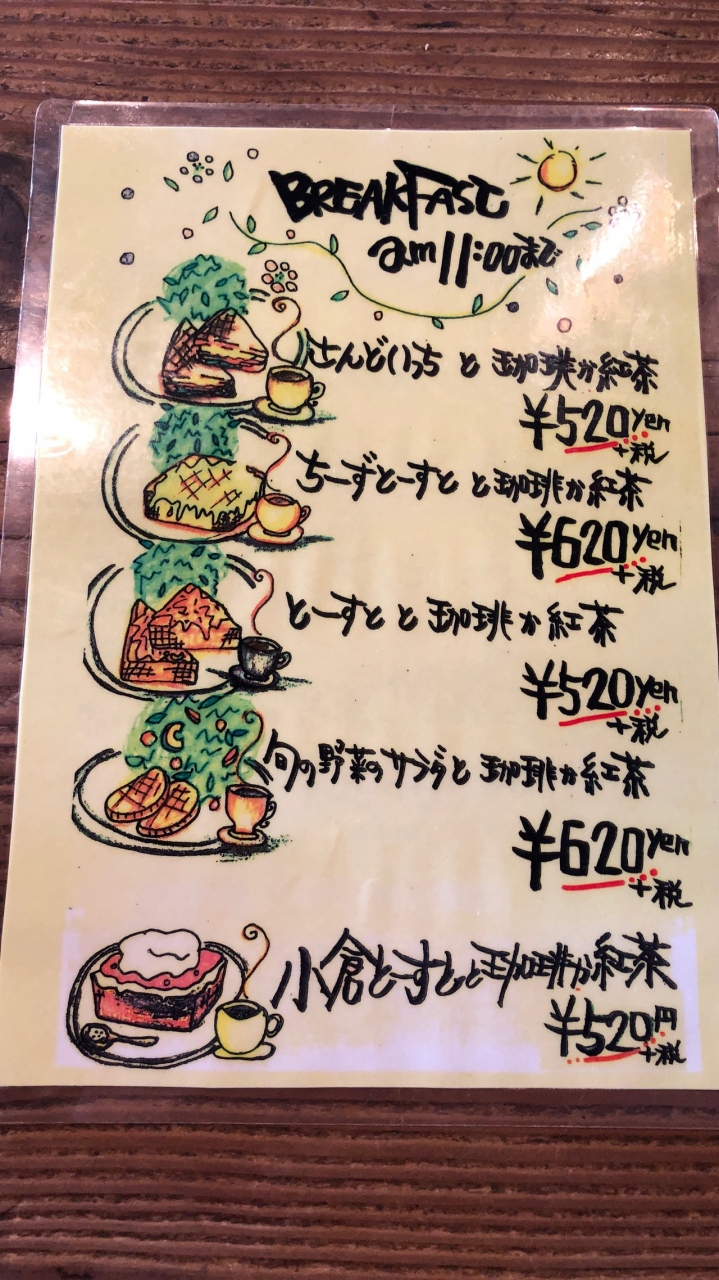 BREAKFAST
am11:00まで
さんどいっち と 珈琲か紅茶
¥520yen
+税
ちーずとーすと と珈琲か紅茶
¥620yen
+税
とーすと と 珈琲か紅茶
¥520yen
+税
旬の野菜のサラダと 珈琲か紅茶
¥620yen
+税
小倉とーすとと珈琲か紅茶
¥520円
+税